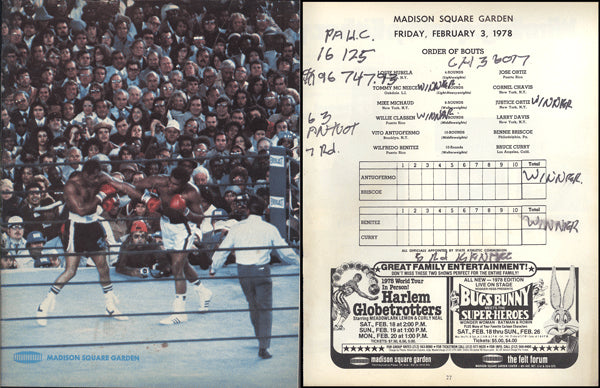 EVERLAST
MADISON SQUARE GARDEN
MADISON SQUARE GARDEN
FRIDAY, FEBRUARY 3, 1978
PAI.C.
16 125
96 747.93
ORDER OF BOUTS
LOUIE HUBELA
Puerto Rico
6 ROUNDS
JOSE ORTIZ
Puerto Rico
TOMMY MC NEECE WINNER
Oakdale, L.I.
CORNEL CHAVIS
New York, N.Y.
MIKE MICHAUD
New York, N.Y.
JUSTICE ORTIZ WINNER
New York, N.Y.
WILLIE CLASSEN WINNER
Puerto Rico
(Middleweights)
LARRY DAVIS
New York, N.Y.
VITO ANTUOFERMO
Brooklyn, N.Y.
(Middleweights)
BENNIE BRISCOE
Philadelphia, Pa.
WILFREDO BENITEZ
Puerto Rico
10 Rounds
(Welterweights)
BRUCE CURRY
Los Angeles, Calif.
63
7 Rd.
1 2 3 4 5 6 7 8 9 10 Total
ANTUOFERMO WINNER
BRISCOE
1 2 3 4 5 6 7 8 9 10 Total
BENITEZ WINNER
CURRY
ALL OFFICIALS APPOINTED BY STATE ATHLETIC COMMISSION
GREAT FAMILY ENTERTAINMENT!
DON'T MISS THESE TWO SHOWS PERFECT FOR THE ENTIRE FAMILY!
1978 World Tour
In Person!
Harlem
Globetrotters
Starring MEADOWLARK LEMON & CURLY NEAL
SAT., FEB. 18 at 2:00 P.M.
SUN., FEB. 19 at 1:00 P.M.
MON., FEB. 20 at 1:00 P.M.
ALL NEW—1978 EDITION
LIVE ON STAGE
BUGS BUNNY
MEETS THE
SUPER-HEROES
WONDER WOMAN • BATMAN & ROBIN
SAT., FEB. 18 thru SUN., FEB. 26
Tickets: $5.00, $4.00
madison square garden
the felt forum
27